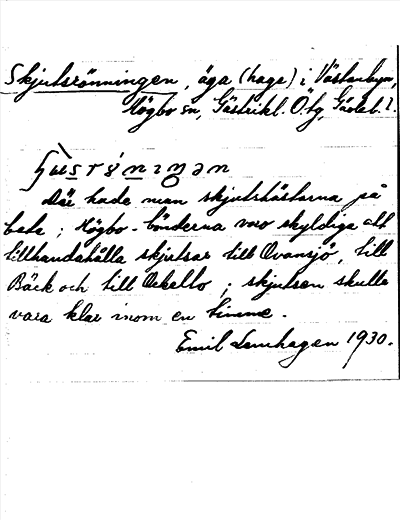 Skjutsrönningen, äga (hage) i Västanbyn,
Högbo sn, Gästrikl. Ö. tg, Gävleb. l.
Där hade man skjutshästarna på
bete; Högbo-bönderna voro skyldiga att
tillhandahålla skjutsar till Ovansjö, till
Bäck och till Ockelbo; skjutsen skulle
vara klar inom en timme.
Emil Lenhagen 1930.